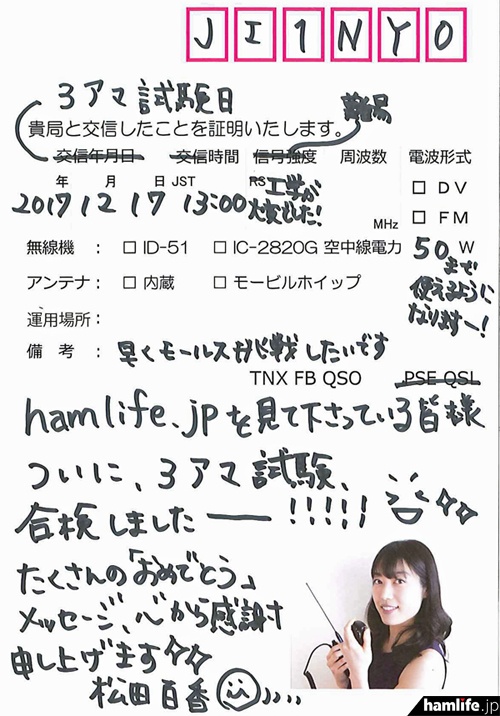 JI1NYO
3アマ試験日
貴局と交信したことを証明いたします。
交信年月日 交信時間 信号強度 周波数 電波形式
年 月 日 JST RS
2017 12 17 13:00 工学が
大変でした!
MHz
□ DV
□ FM
無線機 : □ ID-51 □ IC-2820G 空中線電力 50 W
まで
使えるように
なりますー!
アンテナ : □ 内蔵 □ モービルホイップ
運用場所 :
備 考 : 早くモールスが挑戦したいです
TNX FB QSO PSE QSL
hamlife.jpを見て下さっている皆様
ついに、3アマ試験、
合検しましたー!!!!!
たくさんの「おめでとう」
メッセージ、心から感謝
申し上げます
松田百香
hamlife.jp